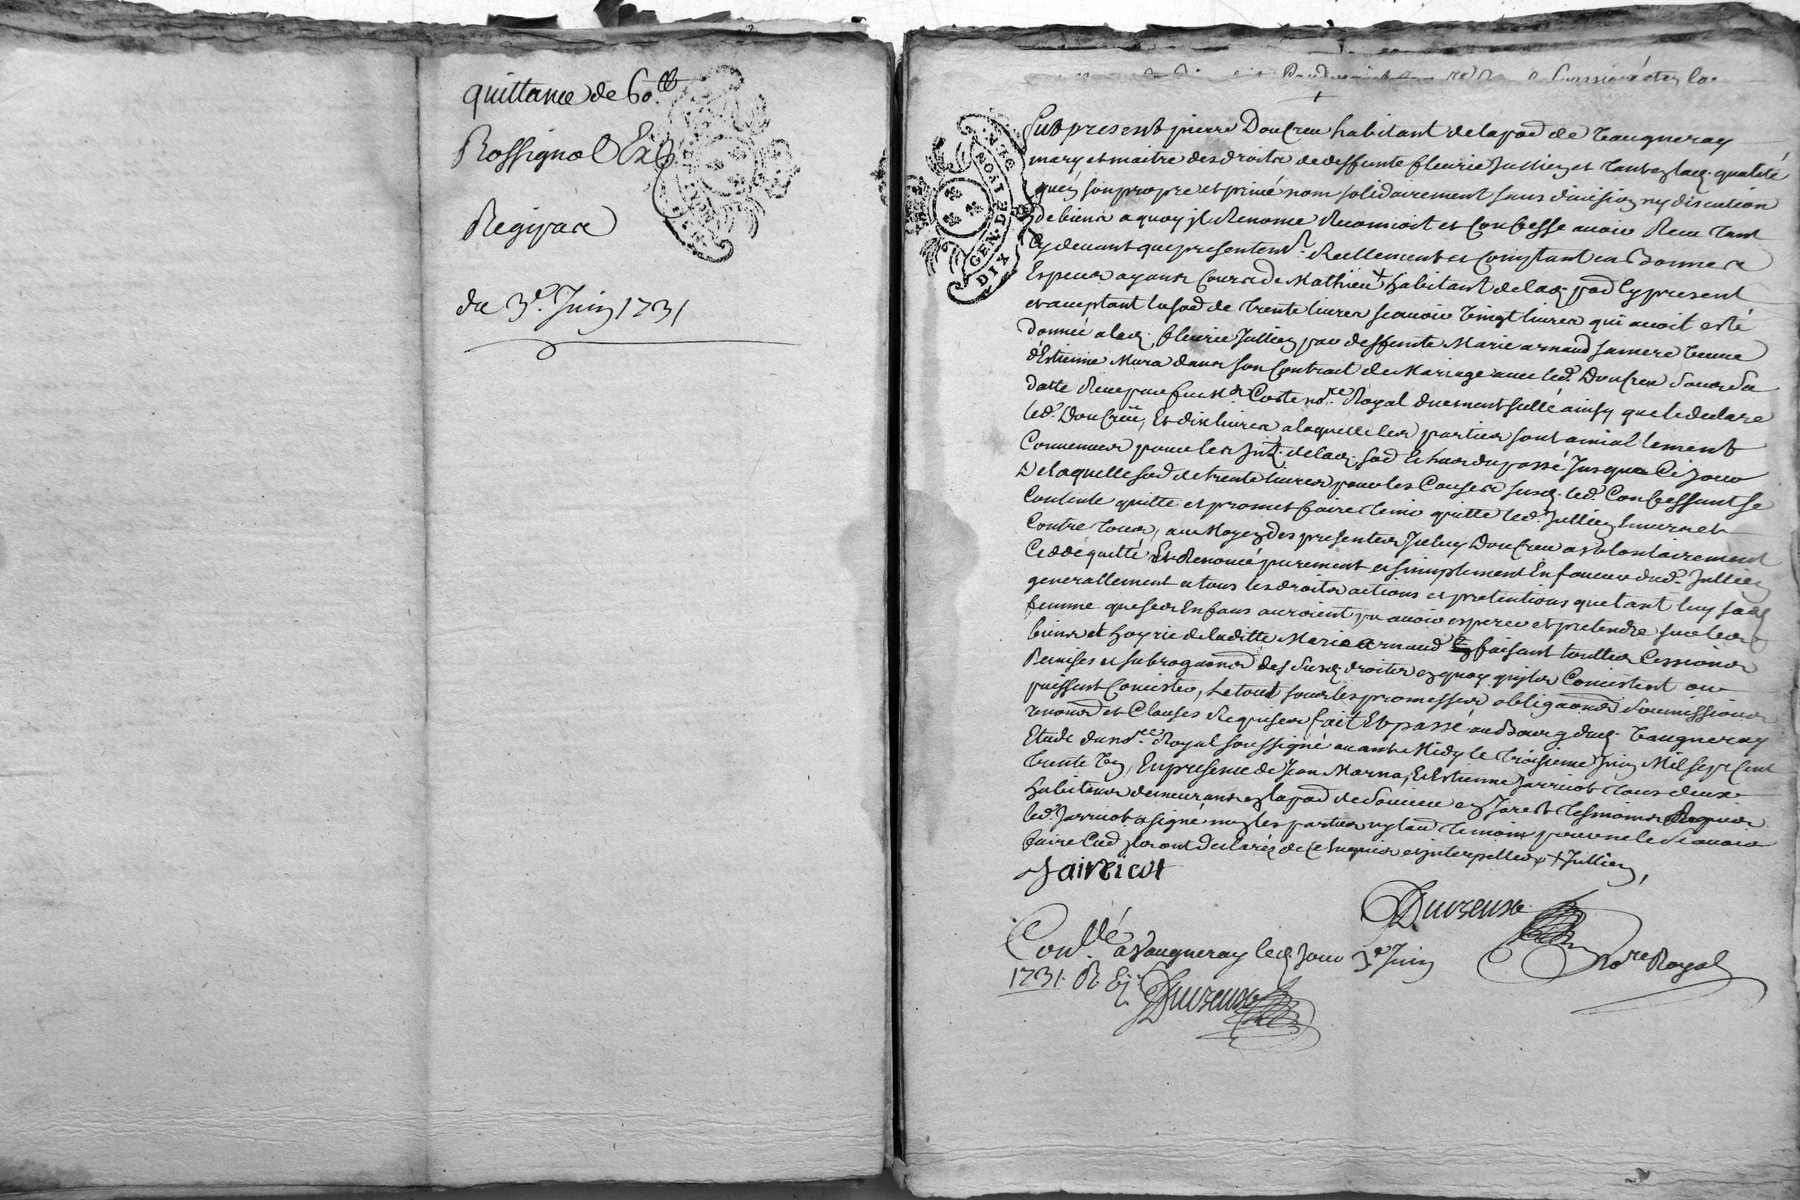 quittance de 60.ll
Rossignol Ex
du 3.e Juin 1731
GEN. DE LYON
DIX
Fut present pierre Doucreu habitant de la pad de Vaugneray
mary et maitre des droits de deffunte fleurie Jullien et tant en lad. qualité
qu'en son propre et privé nom solidairement sans division ny discution
de biens a quoy il Renonce Reconnoit et Confesse avoir Receu tant
Cy devant que presentem.t Reellement et Comptant en Bonnes
Especes ayant Cours de Mathieu habitant de lad. pad Cy present
et acceptant la sod de trente livres scavoir Vingt livres qui avoit esté
donnée a lad. fleurie Jullien par deffunte Marie arnaud sa mere Veuve
d'Estienne Mura dans son Contrait de Mariage avec led. Doucreu sous sa
datte Receu par feu M.r Coste no.re Royal duement sellé ainsy que le declare
led. Doucreu, Et dix livres a laquelle les parties sont amiablement
Convenues pour les Int. de lad. sod Echues du passé Jusques a Ce jour
De laquelle sod de trente livres pour les Causes susd. led. Confessant se
Contente quitte et promet faire tenir quitte led. Jullien Envers et
Contre tous, au Moyen des presentes Iceluy Doucreu a volontairement
Cedde quitté Et Renoncé purement et simplement En faveur dud. Jullien
generallement a tous les droits actions et pretentions que tant luy sad.
femme que ses Enfans auroient pu avoir esperer et pretendre sur les
biens et hoyrie de laditte Marie arnaud faisant touttes Cessions
Remises et subrogaons des susd. droits en quoy qu'ils Consistent ou
puissent Consister, Le tout sous les promesses obligaons Soumissions
renonons et Clauses Requises fait Et passé au Bourg dud. Vaugneray
Etude du no.re Royal soussigné avant Midy le troisieme Juin Mil sept Cent
trente Un, En presence de Jean Marna, Et Estienne Jarricot tous deux
habitans demeurants en la pad de Soucieu en Jarest tesmoins Requis
led. Jarricot a signé non les parties ny laud temoin pour ne le scavoir
faire Cud. ilz ont declaréz de Ce Enquis et interpelles + Jullien,
Jairicot
no.re Royal
Con.llé a Vaugneray led. Jour 3.e Juin
1731. R